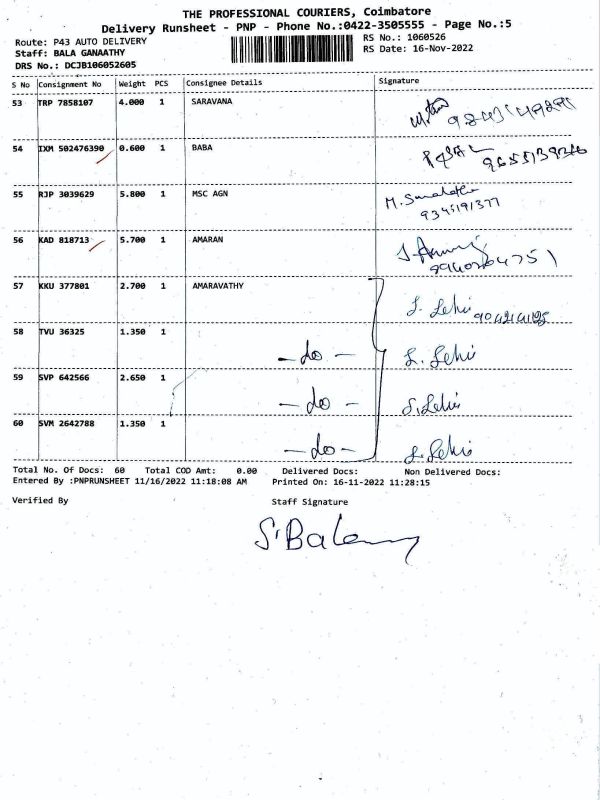 THE PROFESSIONAL COURIERS, Coimbatore
Delivery Runsheet - PNP - Phone No.:0422-3505555 - Page No.:5
Route: P43 AUTO DELIVERY RS No.: 1060526
Staff: BALA GANAATHY RS Date: 16-Nov-2022
DRS No.: DCJB106052605
S No Consignment No Weight PCS Consignee Details Signature
53 TRP 7858107 4.000 1 SARAVANA
54 IXM 502476390 0.600 1 BABA
55 RJP 3039629 5.800 1 MSC AGN
9345191377
56 KAD 818713 5.700 1 AMARAN
57 KKU 377801 2.700 1 AMARAVATHY
58 TVU 36325 1.350 1 - do -
59 SVP 642566 2.650 1 - do -
60 SVM 2642788 1.350 1 - do -
Total No. Of Docs: 60 Total COD Amt: 0.00 Delivered Docs: Non Delivered Docs:
Entered By :PNPRUNSHEET 11/16/2022 11:18:08 AM Printed On: 16-11-2022 11:28:15
Verified By Staff Signature
S.Bala